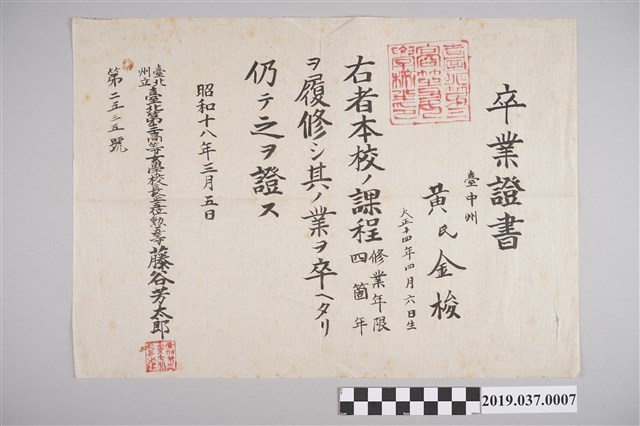 卒業證書
臺中州
黃氏金梭
大正十四年四月六日生
右者本校ノ課程修業年限四箇年
ヲ履修シ其ノ業ヲ卒ヘタリ
仍テ之ヲ證ス
昭和十八年三月五日
臺北州立臺北第三高等女學校長正五位勳五等藤谷芳太郎
第二五三五號
2019.037.0007